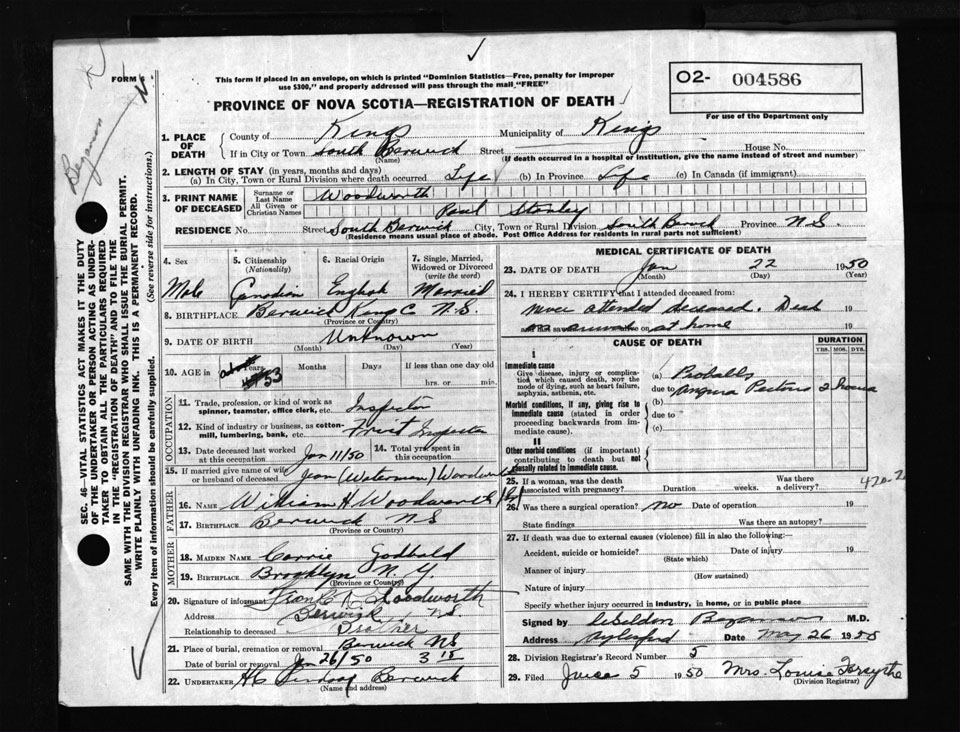 Benjamin
FORM 6
This form if posted in an envelope, on which is printed "Dominion Statistics—Free, penalty for improper
use $300," and properly addressed will pass through the mail "FREE"
PROVINCE OF NOVA SCOTIA—REGISTRATION OF DEATH
O2- 004586
For use of the Department only
1. PLACE OF DEATH County of Kings Municipality of Kings
If in City or Town South Berwick Street House No.
(Name) (If death occurred in a hospital or institution, give the name instead of street and number)
2. LENGTH OF STAY (in years, months and days)
(a) In City, Town or Rural Division where death occurred Life (b) In Province Life (c) In Canada (if immigrant)
3. PRINT NAME OF DECEASED Surname or Last Name Woodworth
All Given or Christian Names Paul Stanley
RESIDENCE No. Street South Berwick City, Town or Rural Division South Province N.S.
(Residence means usual place of abode. Post Office Address for residents in rural parts not sufficient)
4. Sex 5. Citizenship (Nationality) 6. Racial Origin 7. Single, Married, Widowed or Divorced (write the word)
Male Canadian English Married
8. BIRTHPLACE Berwick Kings C. N.S.
(Province or Country)
9. DATE OF BIRTH Unknown
(Month) (Day) (Year)
10. AGE in Years Months Days If less than one day old
53 hrs. or min.
OCCUPATION
11. Trade, profession or kind of work as spinner, teamster, office clerk, etc. Inspector
12. Kind of industry or business, as cotton-mill, lumbering, bank, etc. Fruit Inspector
13. Date deceased last worked at this occupation Jan 11/50 14. Total yrs. spent in this occupation
15. If married give name of wife or husband of deceased Jean (Waterman) Woodworth
FATHER
16. Name William H Woodworth
17. Birthplace Berwick N S
(Province or Country)
MOTHER
18. Maiden Name Carrie Godbald
19. Birthplace Brooklyn N.Y.
(Province or Country)
20. Signature of informant Frank Woodworth
Address Berwick N.S.
Relationship to deceased Brother
21. Place of burial, cremation or removal Berwick NS
Date of burial or removal Jan 26/50 3
22. UNDERTAKER Berwick
(Name and address)
MEDICAL CERTIFICATE OF DEATH
23. DATE OF DEATH Jan 22 1950
(Month) (Day) (Year)
24. I HEREBY CERTIFY that I attended deceased from:
never attended deceased. Dead 19
on arrival at home 19
CAUSE OF DEATH DURATION
YRS. MOS. DYS.
I
Immediate cause
Give disease, injury or complication which caused death, NOT the mode of dying, such as heart failure, asphyxia, asthenia, etc.
(a) Probably
due to Angina Pectoris 2 hours
Morbid conditions, if any, giving rise to immediate cause (stated in order proceeding backwards from immediate cause).
(b)
due to
(c)
II
Other morbid conditions (if important) contributing to death but not causally related to immediate cause.
25. If a woman, was the death associated with pregnancy? Duration weeks. Was there a delivery?
420-2
26. Was there a surgical operation? no Date of operation 19
State findings Was there an autopsy?
27. If death was due to external causes (violence) fill in also the following:—
Accident, suicide or homicide? Date of injury 19
(State which)
Manner of injury
(How sustained)
Nature of injury
Specify whether injury occurred in industry, in home, or in public place
Signed by M.D.
Address Aylesford Date May 26 1950
28. Division Registrar's Record Number 5
29. Filed June 5 1950 Mrs. Louise Forsythe
(Division Registrar)
SEC. 46—VITAL STATISTICS ACT MAKES IT THE DUTY
OF THE UNDERTAKER OR PERSON ACTING AS UNDER-
TAKER TO OBTAIN ALL THE PARTICULARS REQUIRED
IN THE "REGISTRATION OF DEATH" AND TO FILE THE
SAME WITH THE DIVISION REGISTRAR WHO SHALL ISSUE THE BURIAL PERMIT.
WRITE PLAINLY WITH UNFADING INK. THIS IS A PERMANENT RECORD.
Every item of information should be carefully supplied. (See reverse side for instructions.)